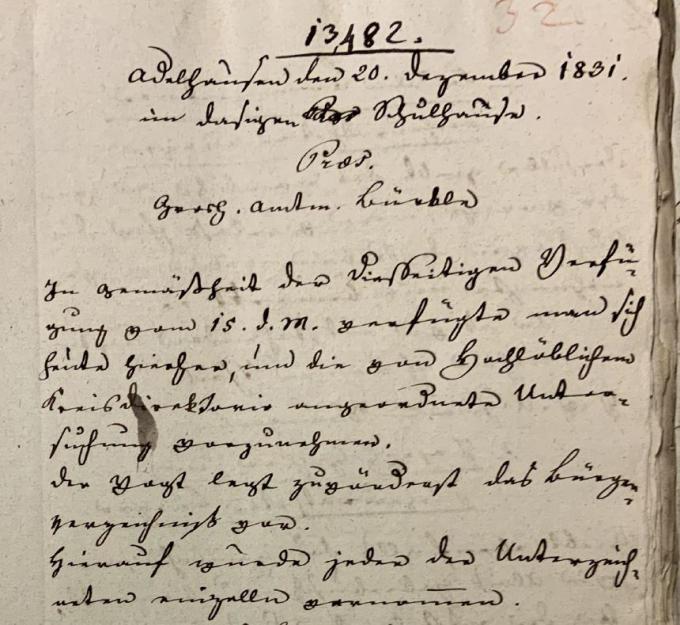 32.
13,482.
Adelhausen den 20. Dezember 1831.
im dasigen Schulhause.
Præs.
Grosh. Amtm. Bürkle
In Gemäßheit der diesseitigen Verfü-
gung vom 15. d. M. verfügte man sich
heute hierher, um die von Hochlöblichem
Kreisdirektorio angeordnete Unter-
suchung vorzunehmen.
Der Vogt legt zuvörderst das Bürger-
verzeichniß vor.
Hierauf wurde jeder der Unterzeich-
neten einzelln vernom̅en.